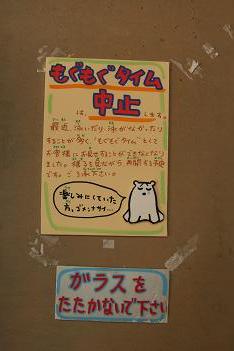 もぐもぐタイム
中止
は、 します。
最近、泳いだり、泳がなかったり
することが多く、"もぐもぐタイム"として
お客様にお見せすることができなくなり
ました。様子を見ながら再開する予定
です。ご了承下さい。
楽しみにしていた
方、ゴメンナサイ…
ガラスを
たたかないで下さい